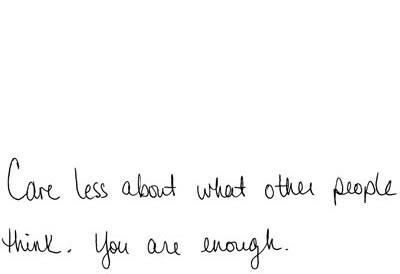 Care less about what other people
think. You are enough.